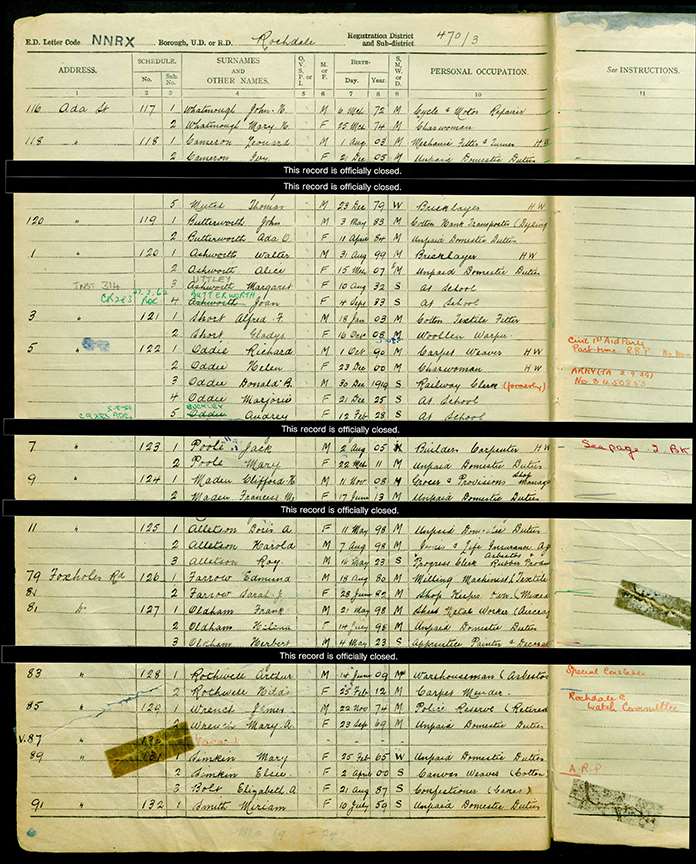 E.D. Letter Code NNRX Borough, U.D. or R.D. Rochdale Registration District and Sub-district 470/3
ADDRESS. SCHEDULE. No. Sub. No. SURNAMES AND OTHER NAMES. O., V., S., P. or I. M. or F. BIRTH— Day. Year. S., M., W. or D. PERSONAL OCCUPATION. See INSTRUCTIONS.
1 2 3 4 5 6 7 8 9 10 11
116 Ada St 117 1 Whatmough John. H. M 6 Mch 72 M Cycle & Motor Repairer
2 Whatmough Mary H. F 25 Mch 74 M Charwoman
118 " 118 1 Cameron Leonard M 1 Aug 03 M Mechanic Fitter & Turner H.W
2 Cameron Ivy F 21 Dec 05 M Unpaid Domestic Duties
This record is officially closed.
This record is officially closed.
5 Thomas M 23 Dec 79 W Bricklayer H W
120 " 119 1 Butterworth John M 3 May 83 M Cotton Transporter (Dyeing
2 Butterworth Ada F 11 April 84 M Unpaid Domestic Duties
1 " 120 1 Ashworth Walter M 31 Aug 99 M Bricklayer H W
2 Ashworth Alice F 15 Mch 07 M Unpaid Domestic Duties
UTTLEY
3 Ashworth Margaret F 10 Aug 32 S At School
CR283 ROC BUTTERWORTH
4 Ashworth Joan F 4 Sept 33 S At School
3 " 121 1 Short Alfred F. M 18 Jan 03 M Cotton Textile Fitter
2 Short Gladys F 16 Dec 08 M Woollen Warper
5 " 122 1 Oddie Richard M 1 Oct 90 M Carpet Weaver H W Civil 1st Aid Party Part-time
2 Oddie Helen F 23 Dec 00 M Charwoman H W
3 Oddie Donald B. M 30 Dec 1919 S Railway Clerk (formerly) ARMY (TA 2.9.39) No.
4 Oddie Marjorie F 21 Dec 25 S At School
BUCKLEY
5 Oddie Audrey F 12 Feb 28 S At School
This record is officially closed.
7 " 123 1 Poole Jack M 2 Aug 05 M Builders Carpenter H W See page 2 Bk
2 Poole Mary F 22 Mch 11 M Unpaid Domestic Duties
9 " 124 1 Maden Clifford H M 11 Nov 08 M Grocer & Provisions Shop Manager
2 Maden Frances M. F 17 June 13 M Unpaid Domestic Duties
This record is officially closed.
11 " 125 1 Alletson Doris A. F 11 May 98 M Unpaid Domestic Duties
2 Alletson Harold M 7 Aug 98 M & Life Insurance Ag
3 Alletson Roy M 16 May 23 S Progress Clerk Asbestos & Rubber
79 Foxholes Rd 126 1 Farrow Edmund M 18 Aug 80 M Milling Machinist (Textile
2 Farrow Sarah J. F 28 June 80 M Shop Keeper own. (Mixed
81 Do 127 1 Oldham Frank M 21 May 98 M Sheet Metal Worker (Aircraft
2 Oldham F 14 July 98 M Unpaid Domestic Duties
3 Oldham Herbert M 4 May 23 S Apprentice Painter & Decorat
This record is officially closed.
83 " 128 1 Rothwell Arthur M 14 June 09 M Warehouseman (Asbestos Special Constable
2 Rothwell Hilda F 25 Feb 12 M Carpet Mender.
85 " 129 1 Wrench James M 22 Nov 74 M Police Reserve (Retired Rochdale C. Watch Committee
2 Wrench Mary A F 23 Sep 69 M Unpaid Domestic Duties
V.87 " - - - -
89 " 1 Simkin Mary F 25 Feb 65 W Unpaid Domestic Duties
2 Simkin Elsie F 2 April 00 S Canvas Weaver (Cotton) A.R.P
3 Bolt Elizabeth A F 21 Aug 87 S Confectioner (Cakes)
91 " 132 1 Smith Miriam F 10 July 59 S Unpaid Domestic Duties